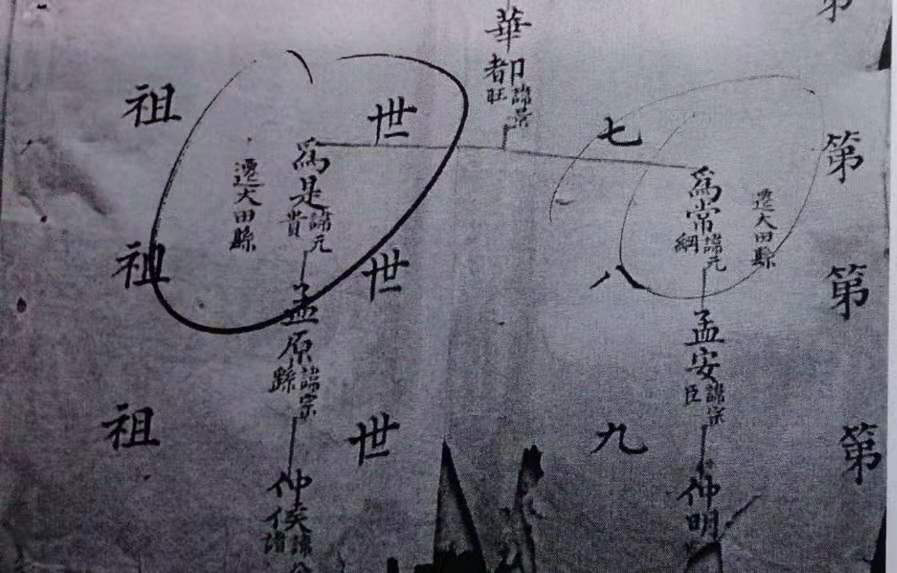 第
華都諱景旺
第七世祖
爲常諱元綱
遷大田縣
爲是諱元貴
遷大田縣
第八世祖
孟安諱宗臣
孟原諱宗
第九世祖
仲明
仲